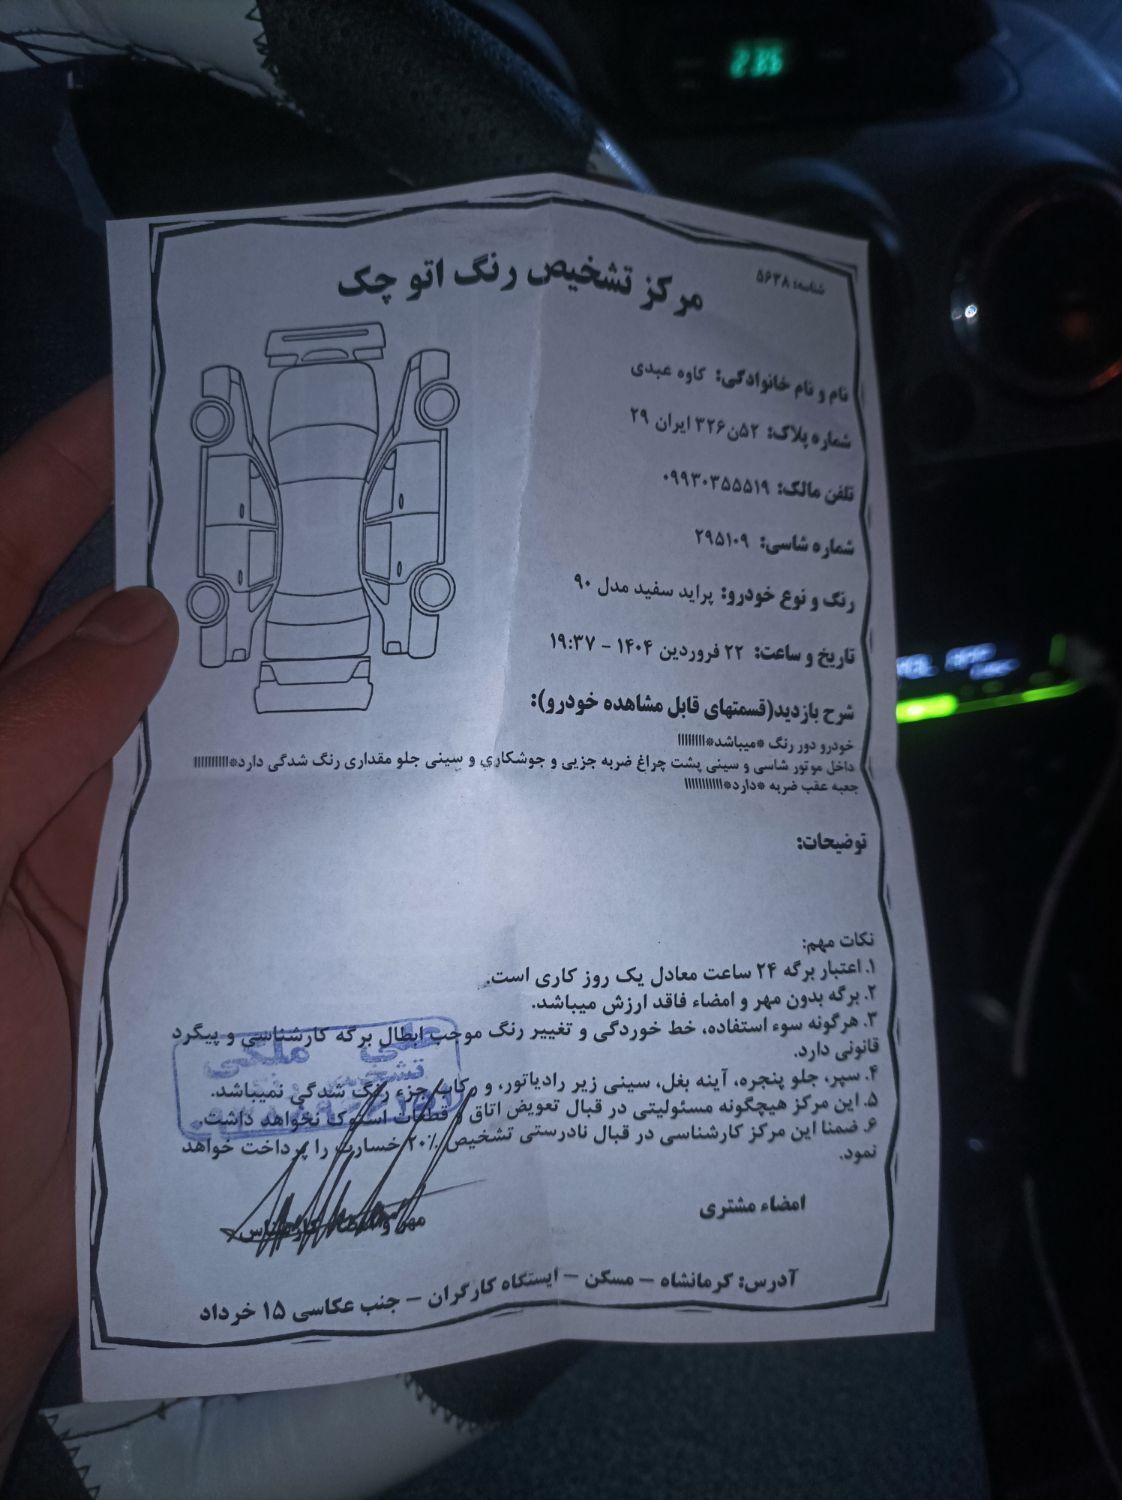 2:35
شناسه: ۵۶۳۸
مرکز تشخیص رنگ اتو چک
نام و نام خانوادگی: کاوه عبدی
شماره پلاک: ۵۲ن۳۲۶ ایران ۲۹
تلفن مالک: ۰۹۹۳۰۳۵۵۵۱۹
شماره شاسی: ۲۹۵۱۰۹
رنگ و نوع خودرو: پراید سفید مدل ۹۰
تاریخ و ساعت: ۲۲ فروردین ۱۴۰۴ - ۱۹:۳۷
شرح بازدید(قسمتهای قابل مشاهده خودرو):
خودرو دور رنگ *میباشد*!!!!!!!!
داخل موتور شاسی و سینی پشت چراغ ضربه جزیی و جوشکاری و سینی جلو مقداری رنگ شدگی دارد*!!!!!!!!!!
جعبه عقب ضربه *دارد*!!!!!!!!!!!
توضیحات:
نکات مهم:
۱. اعتبار برگه ۲۴ ساعت معادل یک روز کاری است.
۲. برگه بدون مهر و امضاء فاقد ارزش میباشد.
۳. هرگونه سوء استفاده، خط خوردگی و تغییر رنگ موجب ابطال برگه کارشناسی و پیگرد
قانونی دارد.
۴. سپر، جلو پنجره، آینه بغل، سینی زیر رادیاتور، و رکاب جزء رنگ شدگی نمیباشد.
۵. این مرکز هیچگونه مسئولیتی در قبال تعویض اتاق و قطعات استوک نخواهد داشت.
۶. ضمنا این مرکز کارشناسی در قبال نادرستی تشخیص ۲۰٪ خسارت را پرداخت خواهد
نمود.
علی ملکی
تشخیص رنگ
امضاء مشتری
مهر و امضاء کارشناس
آدرس: کرمانشاه - مسکن - ایستگاه کارگران - جنب عکاسی ۱۵ خرداد